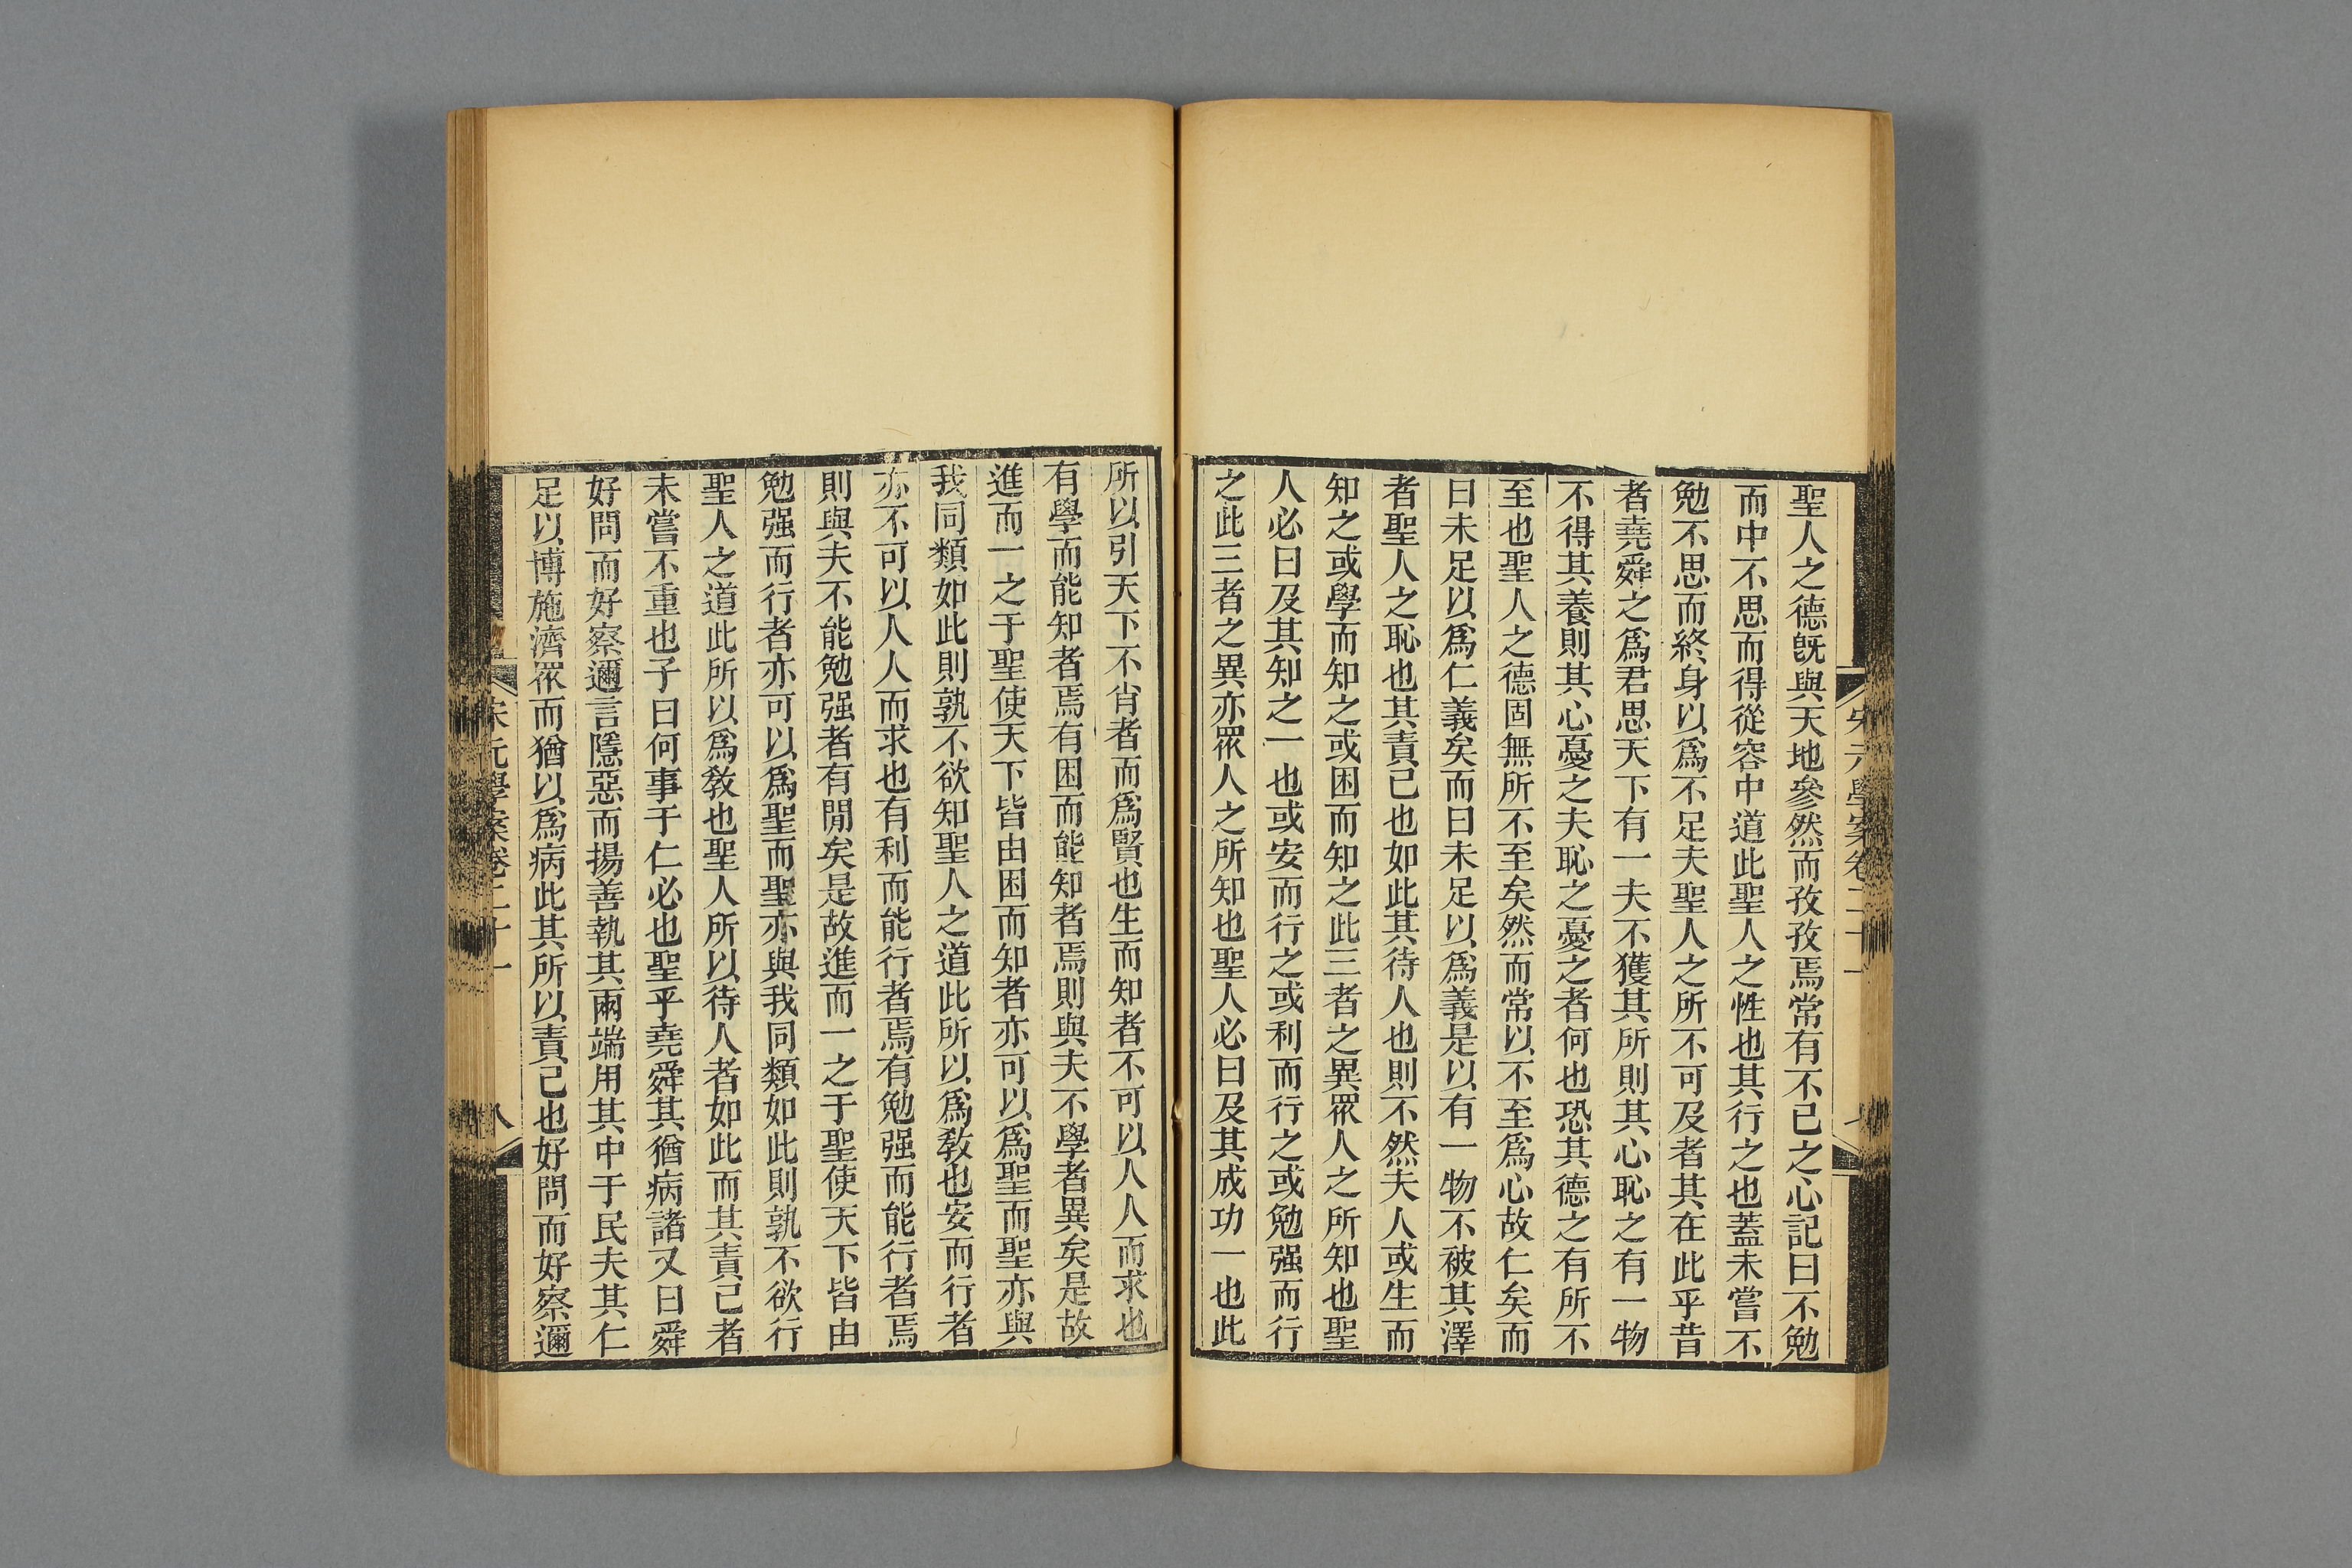 聖人之德既與天地參然而孜孜焉常有不已之心記曰不勉
而中不思而得從容中道此聖人之性也其行之也蓋未嘗不
勉不思而終身以爲不足夫聖人之所不可及者其在此乎昔
者堯舜之爲君思天下有一夫不獲其所則其心恥之有一物
不得其養則其心憂之夫恥之憂之者何也恐其德之有所不
至也聖人之德固無所不至矣然而常以不至爲心故仁矣而
曰未足以爲仁義矣而曰未足以爲義是以有一物不被其澤
者聖人之恥也其責己也如此其待人也則不然夫人或生而
知之或學而知之或困而知之此三者之異眾人之所知也聖
人必曰及其知之一也或安而行之或利而行之或勉强而行
之此三者之異亦眾人之所知也聖人必曰及其成功一也此
所以引天下不肖者而爲賢也生而知者不可以人人而求也
有學而能知者焉有困而能知者焉則與夫不學者異矣是故
進而一之于聖使天下皆由困而知者亦可以爲聖而聖亦與
我同類如此則孰不欲知聖人之道此所以爲敎也安而行者
亦不可以人人而求也有利而能行者焉有勉强而能行者焉
則與夫不能勉强者有閒矣是故進而一之于聖使天下皆由
勉强而行者亦可以爲聖而聖亦與我同類如此則孰不欲行
聖人之道此所以爲敎也聖人所以待人者如此而其責己者
未嘗不重也子曰何事于仁必也聖乎堯舜其猶病諸又曰舜
好問而好察邇言隱惡而揚善執其兩端用其中于民夫其仁
足以博施濟眾而猶以爲病此其所以責己也好問而好察邇
宋元學案卷二十一
八